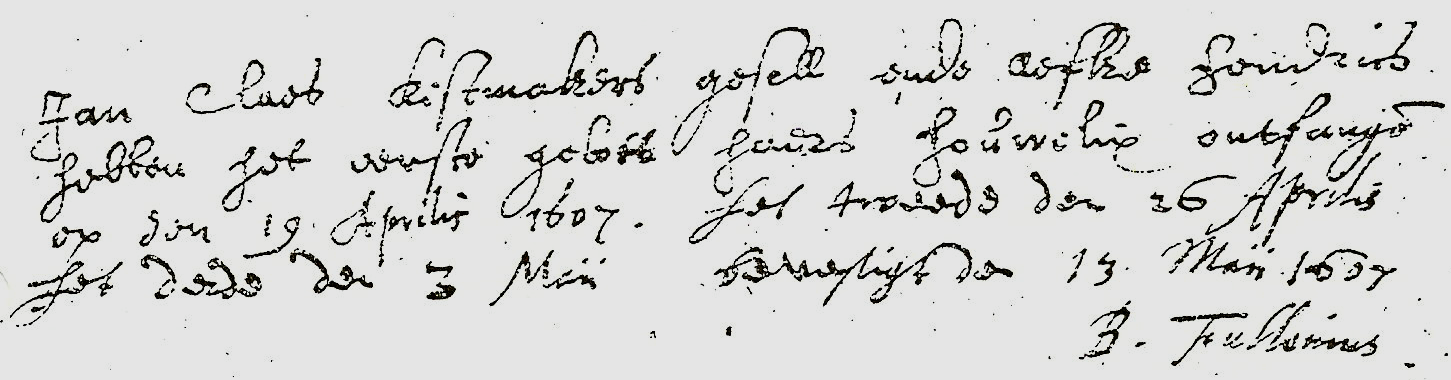 Jan Claes kistmakers gesell ende Aefke Hendricks
hebben het eerste gebott haers houwelix ontfange
op den 19 Aprilis 1607. het tweede den 26 Aprilis
het derde den 3 Maii bevestigt den 13 Maii 1607
B. Fullenius